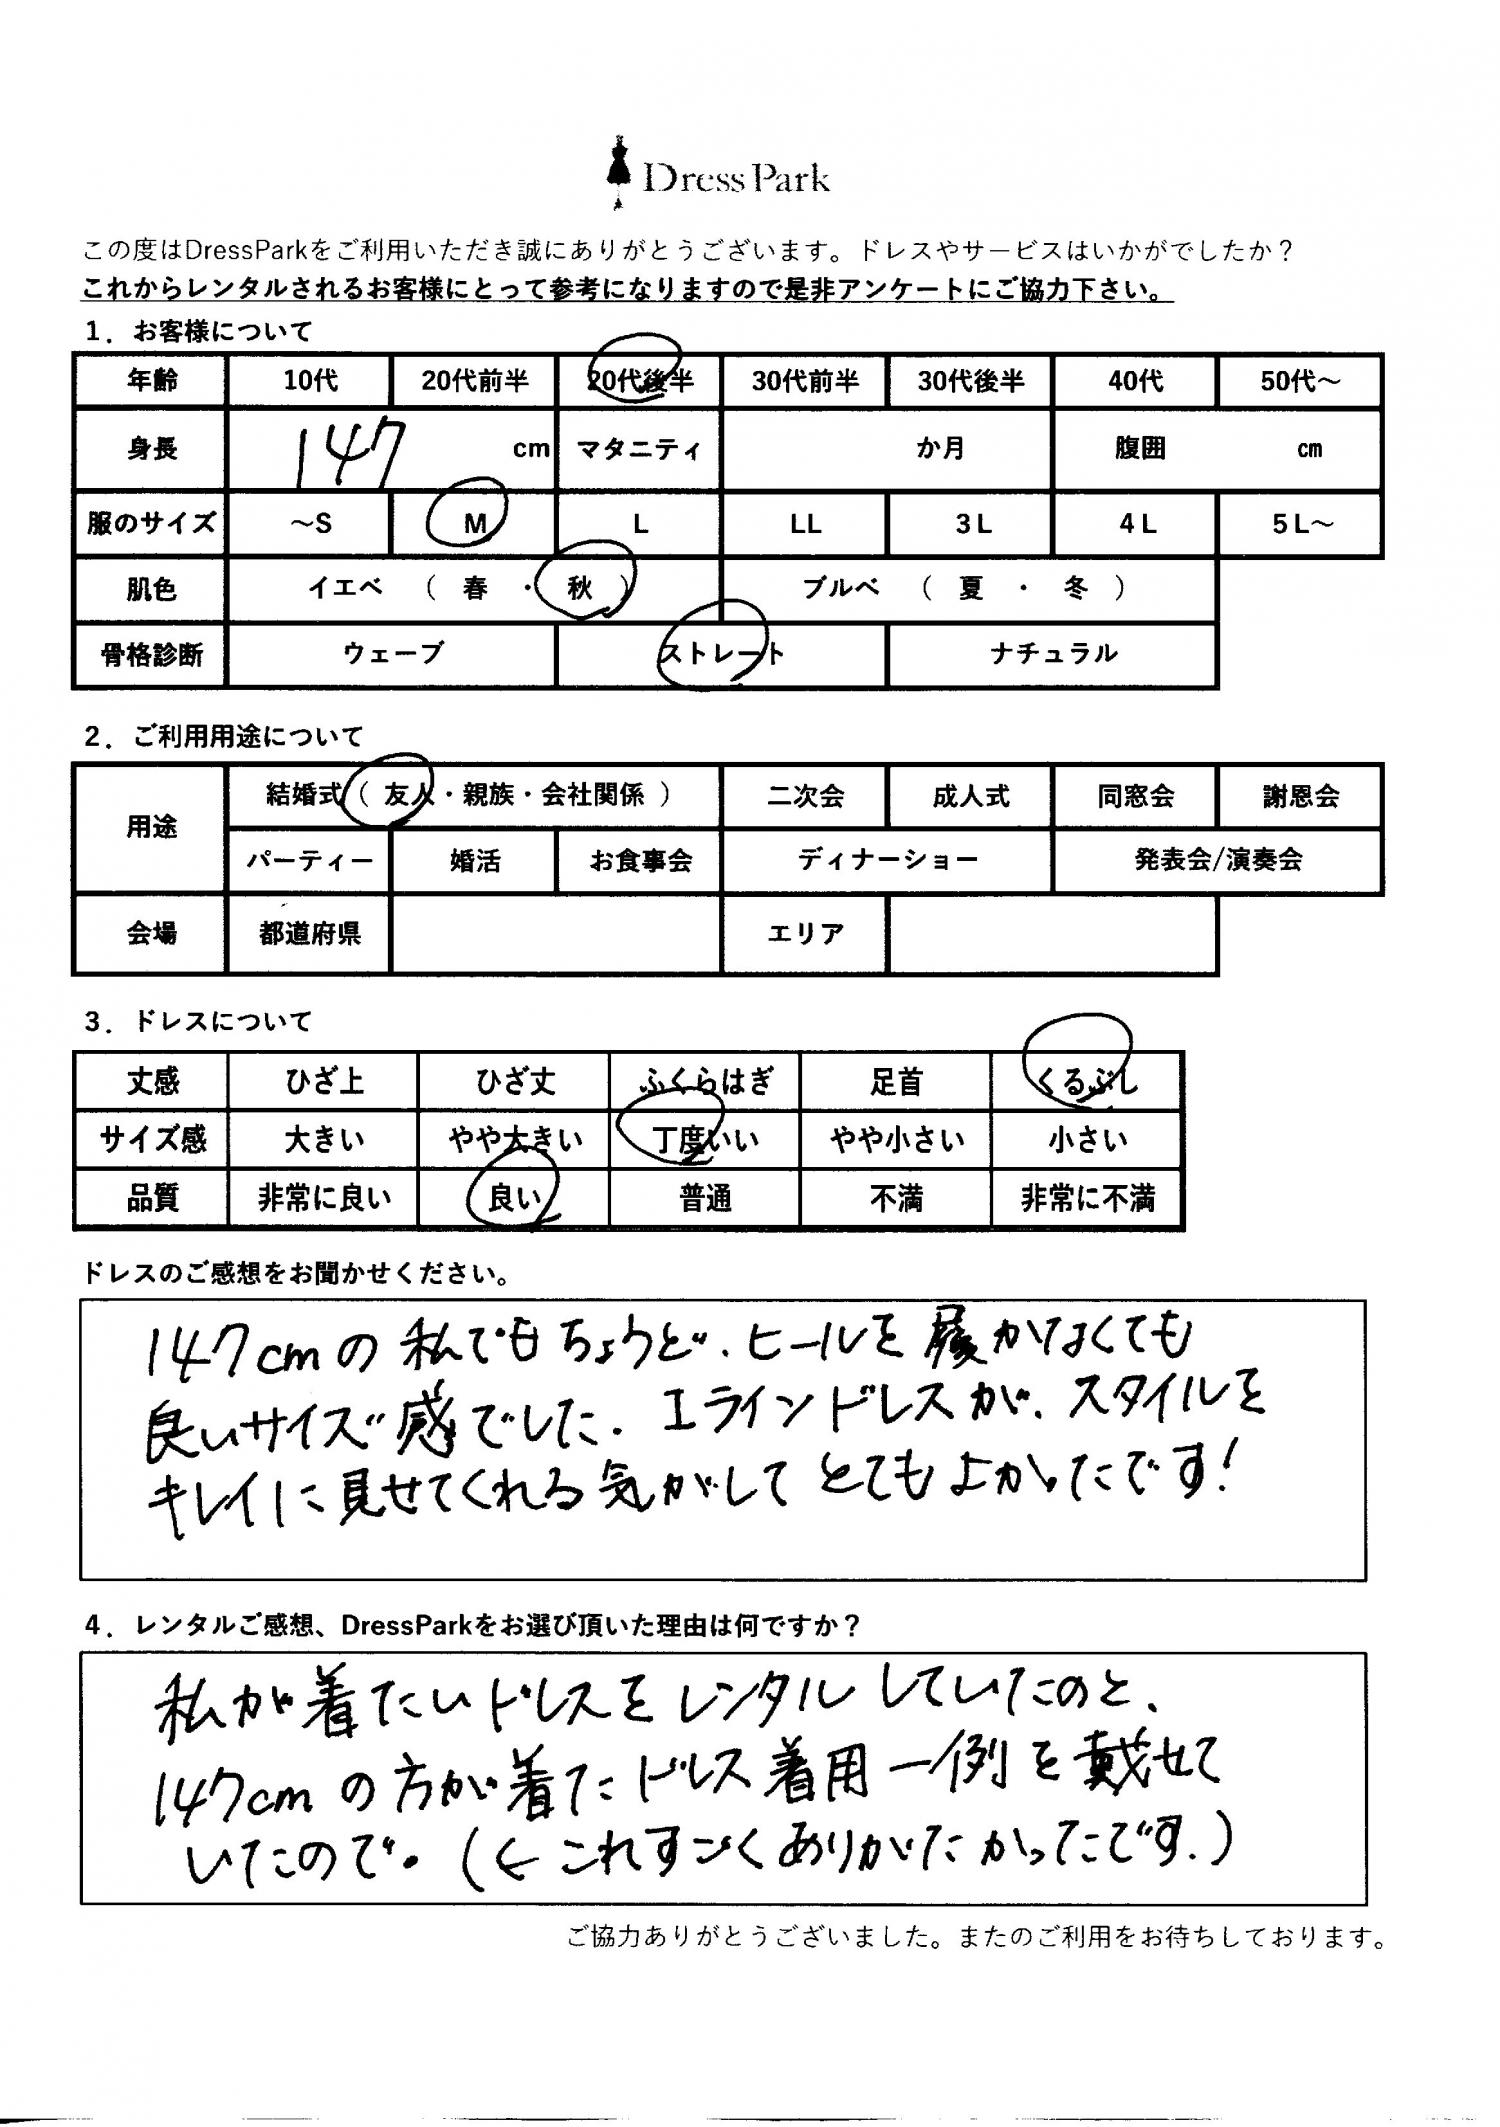 Dress Park
この度はDressParkをご利用いただき誠にありがとうございます。ドレスやサービスはいかがでしたか？
これからレンタルされるお客様にとって参考になりますので是非アンケートにご協力下さい。
1．お客様について
年齢 10代 20代前半 20代後半 30代前半 30代後半 40代 50代～
身長 147 cm マタニティ か月 腹囲 ㎝
服のサイズ ～S M L LL 3L 4L 5L～
肌色 イエベ （ 春 ・ 秋 ） ブルベ （ 夏 ・ 冬 ）
骨格診断 ウェーブ ストレート ナチュラル
2．ご利用用途について
用途 結婚式（ 友人・親族・会社関係 ） 二次会 成人式 同窓会 謝恩会
パーティー 婚活 お食事会 ディナーショー 発表会/演奏会
会場 都道府県 エリア
3．ドレスについて
丈感 ひざ上 ひざ丈 ふくらはぎ 足首 くるぶし
サイズ感 大きい やや大きい 丁度いい やや小さい 小さい
品質 非常に良い 良い 普通 不満 非常に不満
ドレスのご感想をお聞かせください。
147cmの私でもちょうど、ヒールを履かなくても
良いサイズ感でした. Iラインドレスが、スタイルを
キレイに見せてくれる気がしてとてもよかったです!
4．レンタルご感想、DressParkをお選び頂いた理由は何ですか？
私が着たいドレスをレンタルしていたのと、
147cmの方が着たドレス着用一例を載せて
いたので。(←これすごくありがたかったです.)
ご協力ありがとうございました。またのご利用をお待ちしております。